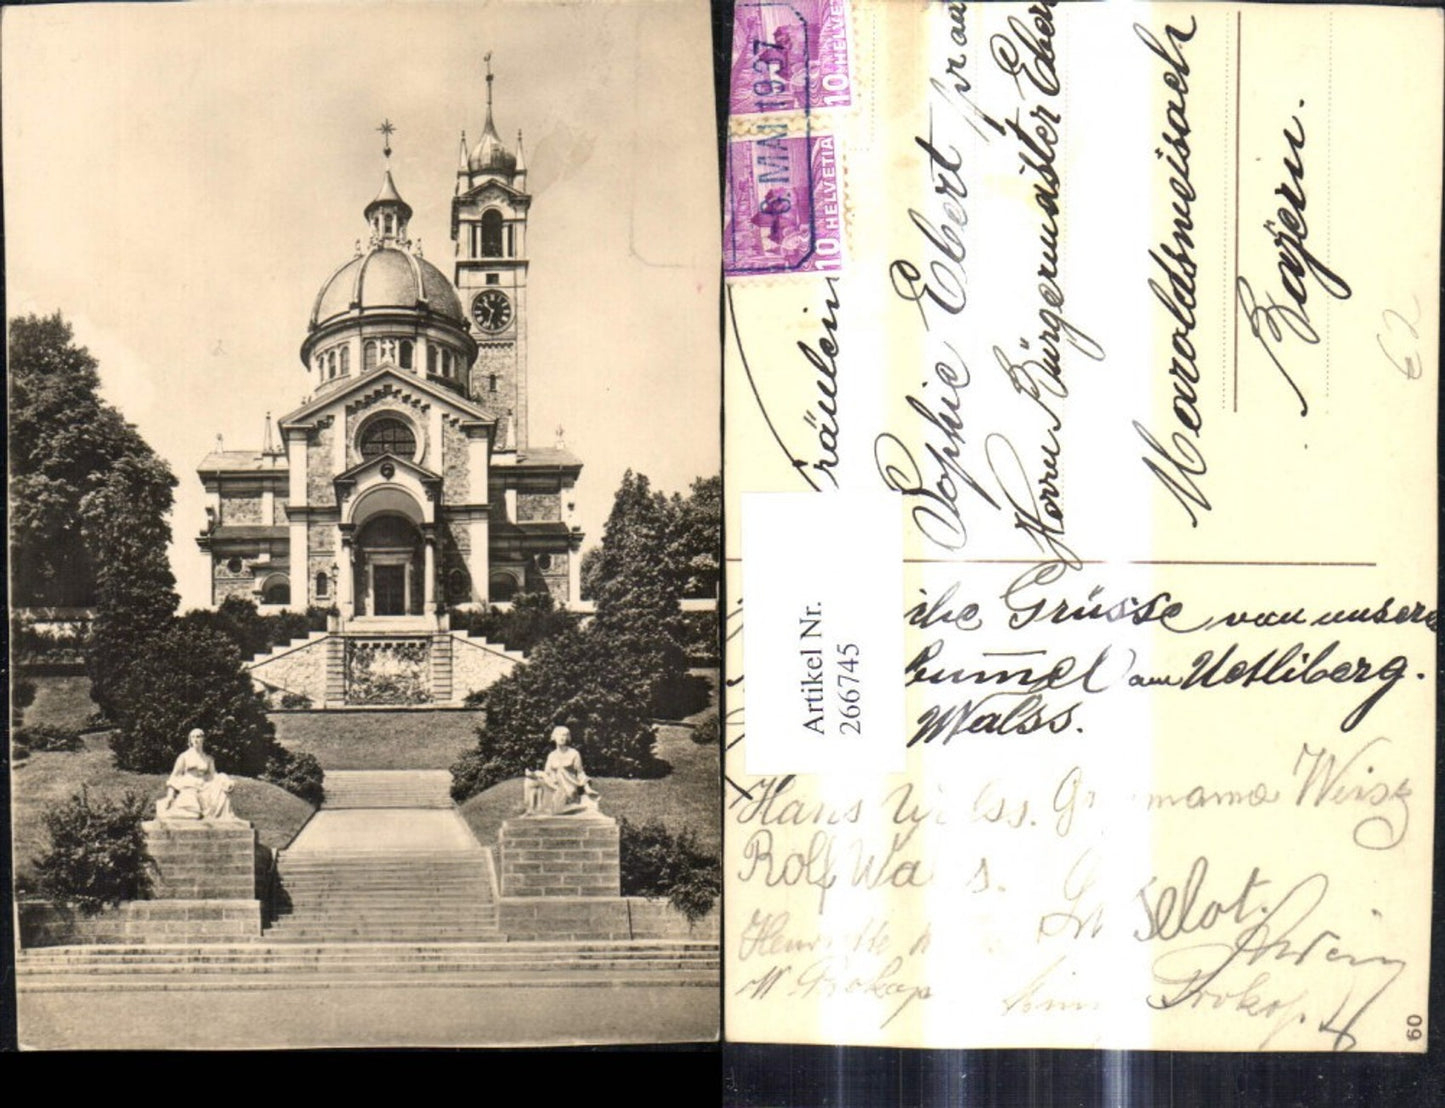 10 HELVETIA
10 HELVE
-6. MAI 1937
räulein
Sophie Ebert
Herrn Bürgermeister Eber
Maroldsweisach
Bayern.
€2
Artikel Nr.
266745
iche Grüsse von unsere
bummel am Uetliberg.
Walss.
Hans W lss. G mama Weisz
Rolf Wa s.
Prokop
Prokop.
60